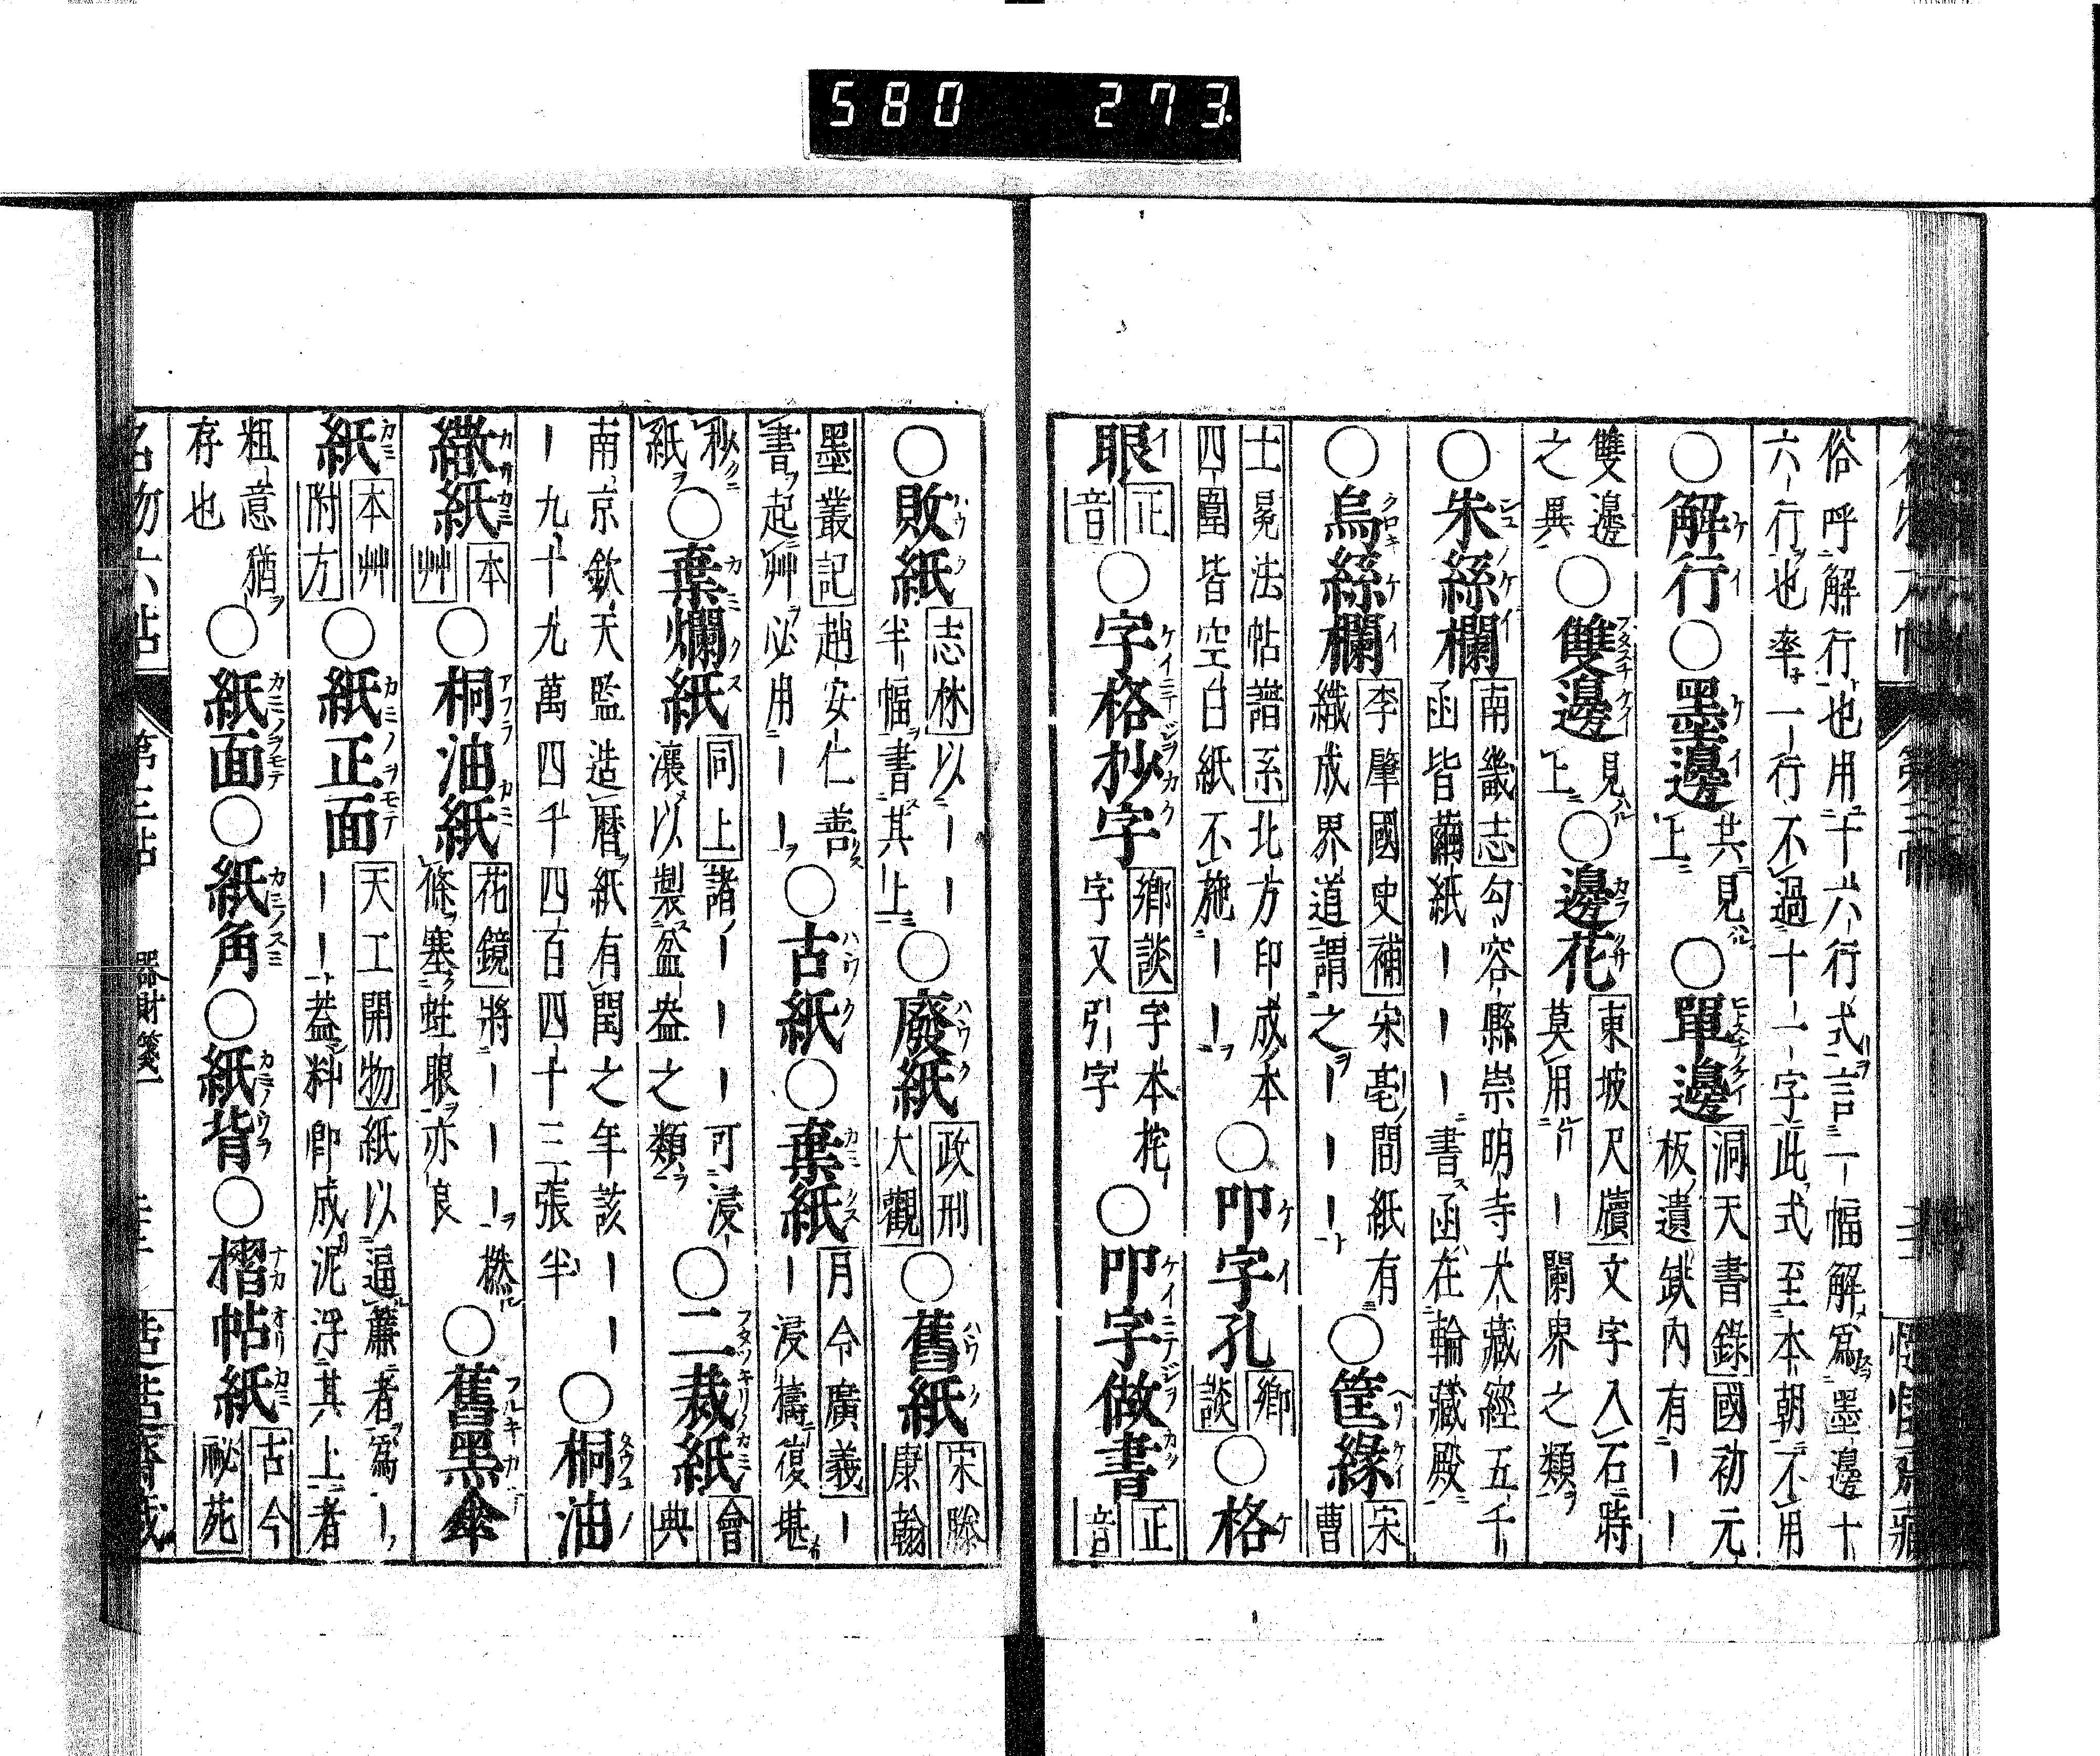 580 273
俗呼解行也用十六行式言一幅解爲墨邊十
六行也率一行不過十一字此式至本朝不用
○解行○墨邊共見上○單邊洞天書錄國初元
板遺缺內有｜｜
雙邊之異○雙邊見上○邊花東坡尺牘文字入石時
莫用｜｜闌界之類
○朱絲欄南畿志勾容縣崇明寺大藏經五千
函皆繭紙｜｜｜書函在輪藏殿
○烏絲欄李肇國史補宋亳間紙有
織成界道謂之｜｜｜○筐緣宋曹
士冕法帖譜系北方印成本
四圍皆空白紙不施｜｜○叩字孔鄉談○格
眼正音○字格抄字鄉談字本挓
字又引字○叩字做書正音
○敗紙志林以｜｜
半幅書其上○廢紙政刑大觀○舊紙宋滕康翰
墨叢記趙安仁善
書起艸必用｜｜○古紙○棄紙月令廣義｜
｜浸擣復堪
秋紙○棄爛紙同上諸｜｜｜可浸
瀼以製盆盎之類○二裁紙會典
南京欽天監造曆紙有閏之年該｜｜
｜九十九萬四千四百四十三張半○桐油
繖紙本艸○桐油紙花鏡將｜｜｜撚
條塞蛀眼亦良○舊黑傘
紙本艸附方○紙正面天工開物紙以逼簾者爲｜
｜｜蓋料卽成泥浮其上者
粗意猶
存也○紙面○紙角○紙背○摺帖紙古今祕苑
名物六帖 第三帖 器財箋一